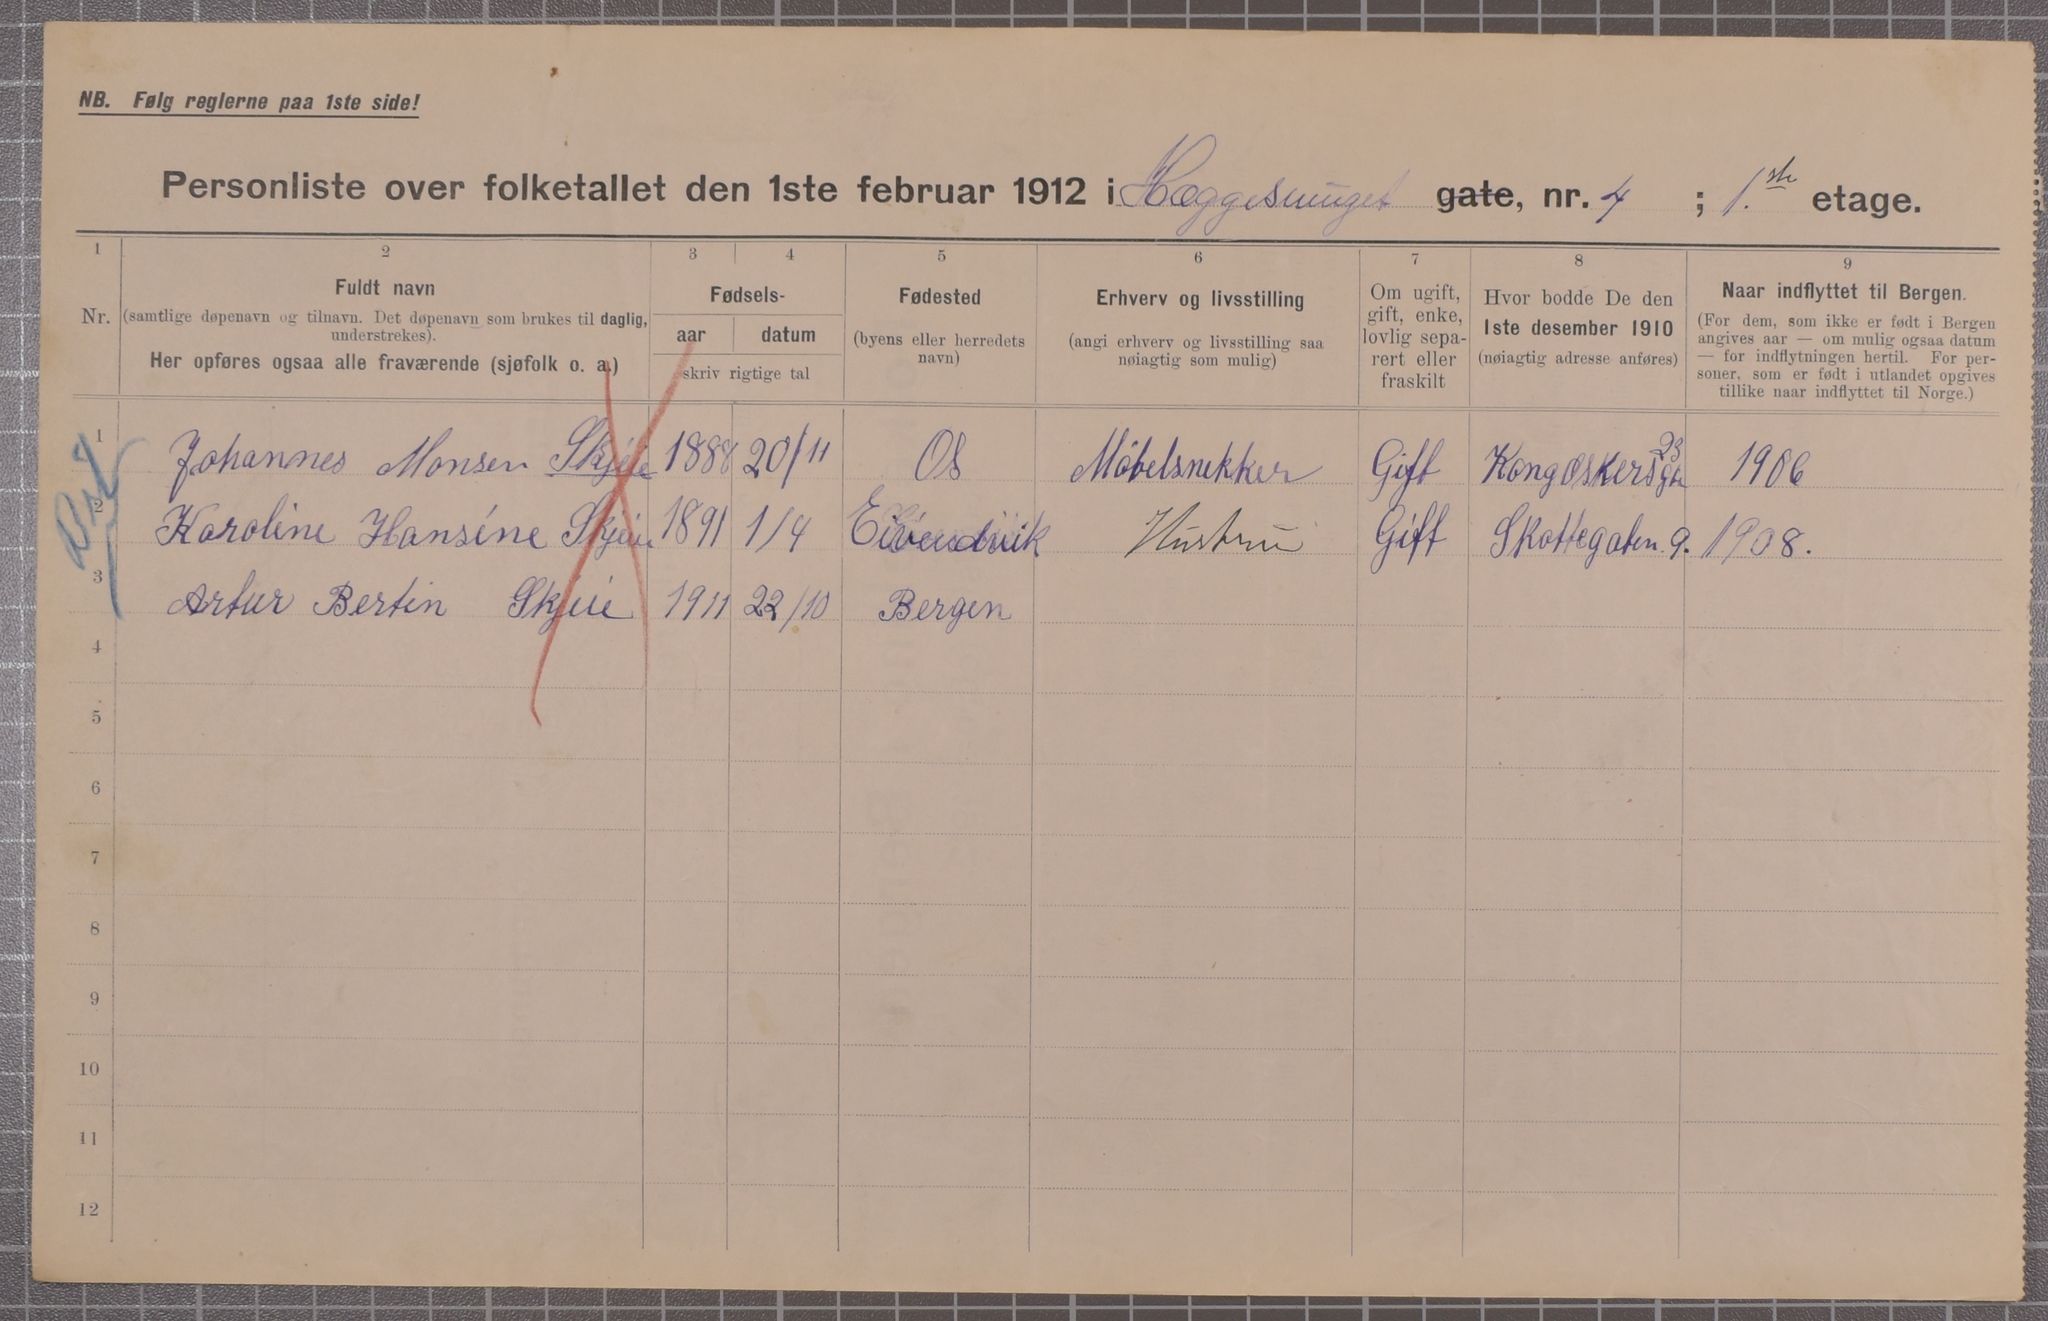 NB. Følg reglerne paa 1ste side!
Personliste over folketallet den 1ste februar 1912 i Hæggesmuget gate, nr. 4 ; 1.ste etage.
1 2 3 4 5 6 7 8 9
Nr.
Fuldt navn
(samtlige døpenavn og tilnavn. Det døpenavn som brukes til daglig,
understrekes).
Her opføres ogsaa alle fraværende (sjøfolk o. a.)
Fødsels-
aar datum
skriv rigtige tal
Fødested
(byens eller herredets
navn)
Erhverv og livsstilling
(angi erhverv og livsstilling saa
nøiagtig som mulig)
Om ugift,
gift, enke,
lovlig sepa-
rert eller
fraskilt
Hvor bodde De den
1ste desember 1910
(nøiagtig adresse anføres)
Naar indflyttet til Bergen.
(For dem, som ikke er født i Bergen
angives aar — om mulig ogsaa datum
— for indflytningen hertil. For per-
soner, som er født i utlandet opgives
tillike naar indflyttet til Norge.)
1 Johannes Monsen Skjeie 1888 20/11 Os Møbelsnekker Gift Kong Oskersgt 23 1906
2 Karoline Hansine Skjeie 1891 1/4 Eivendvik Hustru Gift Skottegaten 9. 1908.
3 Artur Bertin Skjeie 1911 22/10 Bergen
4
5
6
7
8
9
10
11
12